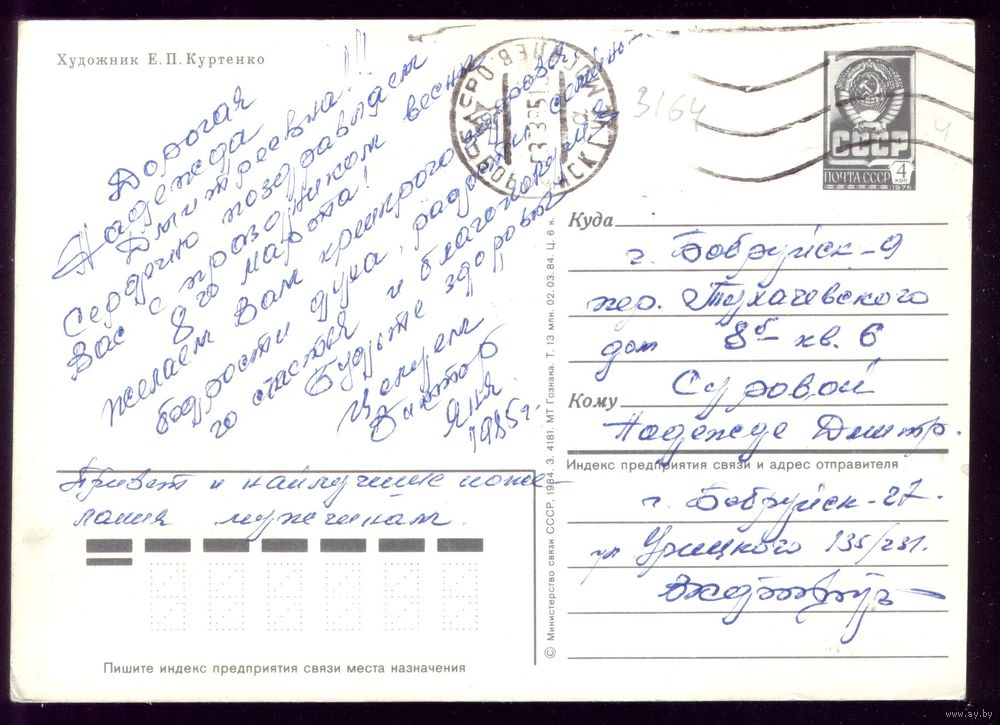 Художник Е. П. Куртенко
Дорогая
Надежда
Дмитриевна!!!
Сердечно поздравляем
Вас с праздником весны
8го марта!
Желаем Вам крепкого здоровья,
бодрости духа, радости семейно-
го счастья и благополучия.
Будьте здоровы
Виктор
Яня
1985г.
Привет и наилучшие поже-
лания мужчинам.
Пишите индекс предприятия связи места назначения
© Министерство связи СССР, 1984. З. 4181. МТ Гознака. Т. 13 млн. 02. 03. 84. Ц. 6 к.
3164
4
СССР
ПОЧТА СССР
4 коп
1976
Куда
г. Бобруйск-9
пер. Тухачевского
дом 8б кв. 6
Суровой
Кому
Надежде Дмитр.
Индекс предприятия связи и адрес отправителя
г. Бобруйск-27.
ул Урицкого 135/281.